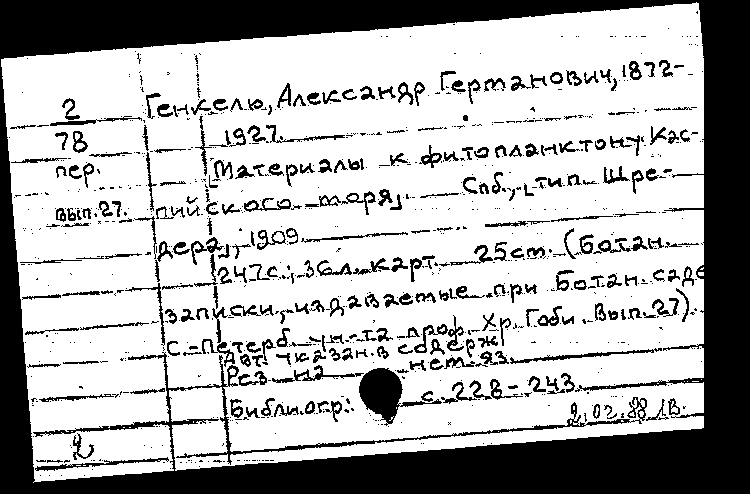 2 Генкель, Александр Германович, 1872-
78 1927.
пер. [Материалы к фитопланктону Кас-
вып.27. пийского моря]. Спб., [тип. Шре-
дера], 1909.
247с.; 36л. карт. 25cm. (Ботан.
записки, издаваемые при Ботан. саде
С.-Петерб. ун-та проф. Хр. Гоби. Вып. 27).
Авт. указан. в содерж.
Рез. на нем. яз.
Библиогр.: с. 228-243.
2 2.02.88 ІВ.